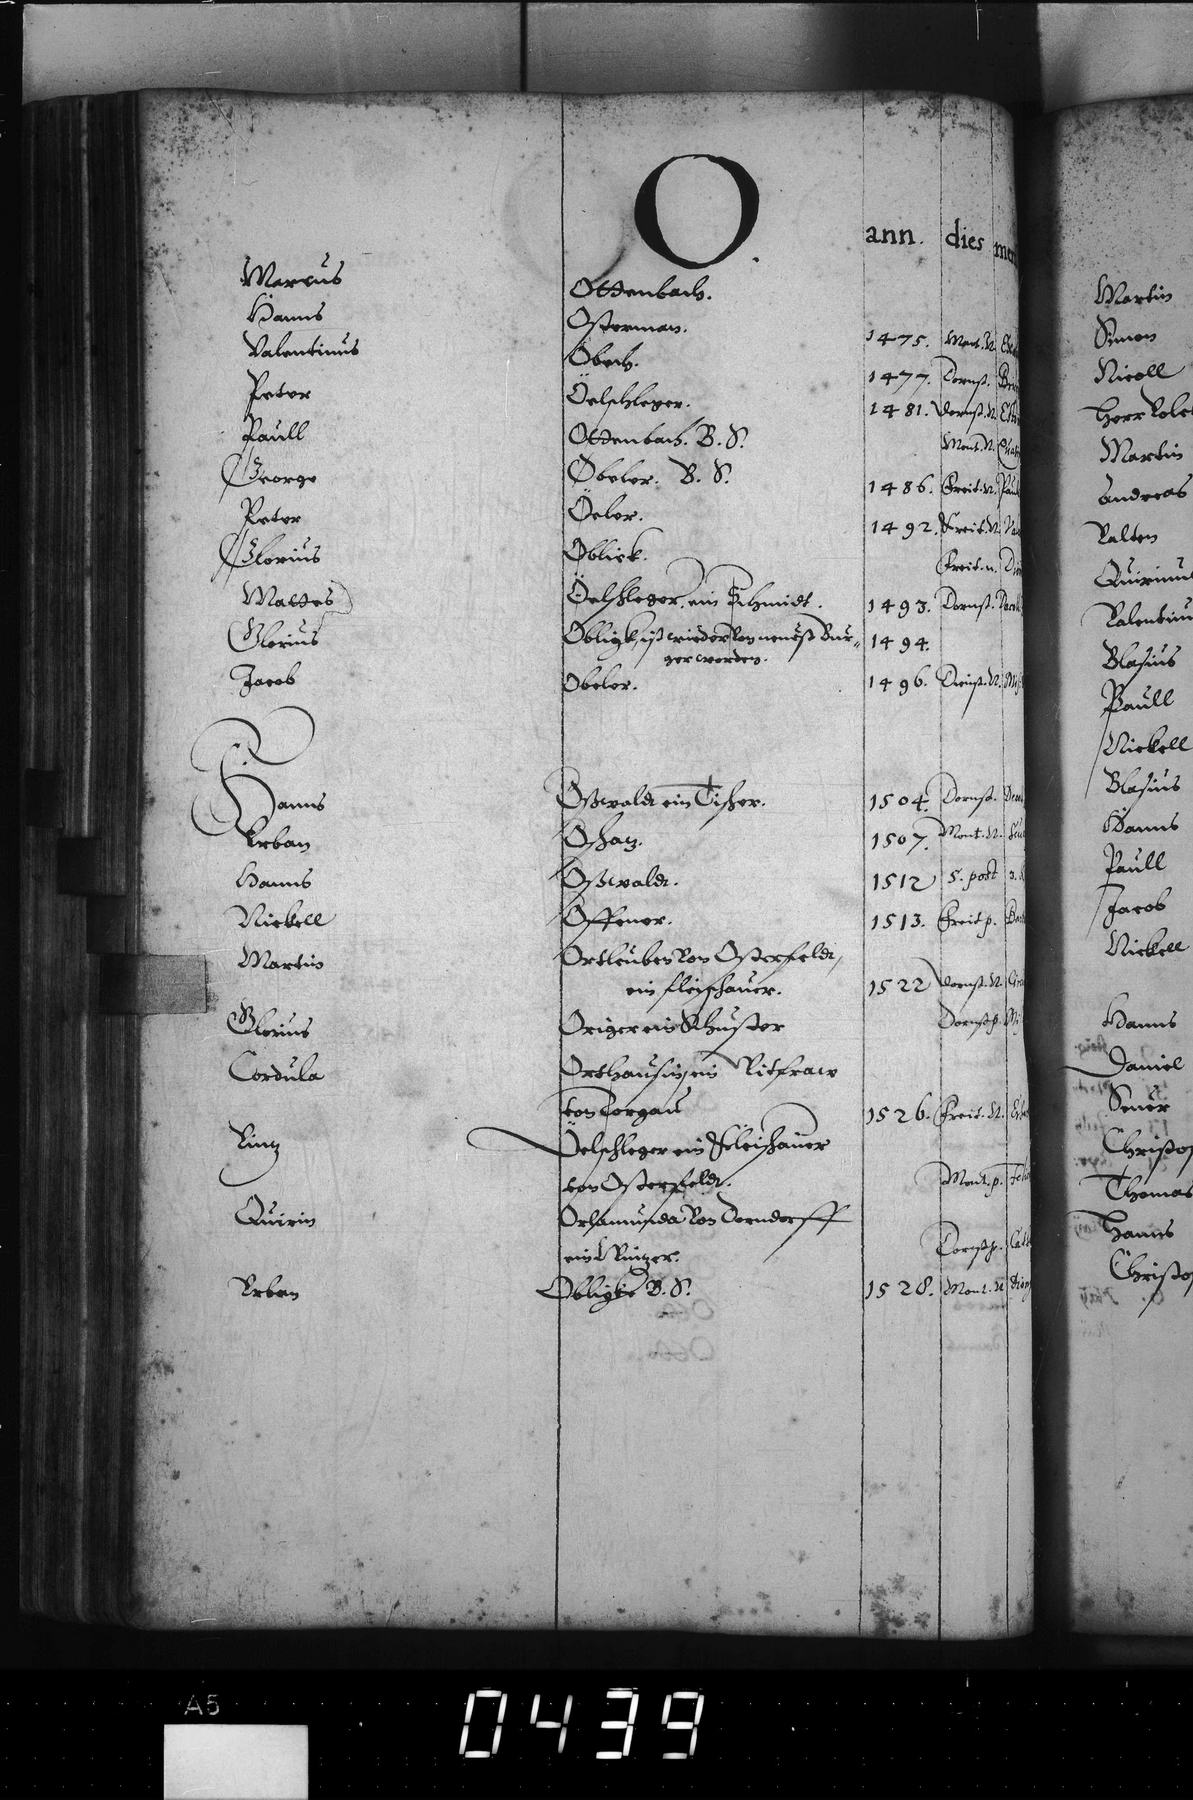 O.
ann. dies
Marcus Ottenbach.
Hanns Osterman. 1475. Mont. N.
Valentinus Obech. 1477. Dornst.
Peter Öelschleger. 1481. Dornst. N.
Paull Ottenbach. B. S. Mont. N.
George Obeler. B. S. 1486. Freit. N.
Peter Öeler. 1492. Freit. N.
Glorius Oblick. Freit. n.
Mattes Öelschleger, ein Schmidt. 1493. Dornst.
Glorius Obligk, ist wieder von neuest Bur= 1494.
ger worden.
Jacob Obeler. 1496. Dienst. N.
Hanns Oswaldt ein Tischer. 1504. Dornst.
Urban Oschatz. 1507. Mont. N.
Hanns Oswaldt. 1512 5. post
Nickell Offener. 1513. Freit p.
Martin Ortleuben von Osterfeldt,
ein fleischauer. 1522 Dornst. N.
Glorius Origer ein Schuster Dornst p.
Cordula Orthausin, ein Witfraw
von Torgau 1526. Freit. N.
Lintz Öelschleger ein Fleischauer
von Osterfeldt. Mont. p.
Quirin Orlamunda von Dorndorff
ein Dornst p.
Urban Obligke B. S. 1528. Mont. N
Martin
Simon
Nicoll
Herr
Martin
Andreas
Valten
Quirinus
Valentin
Blasius
Paull
Nickell
Blasius
Hanns
Paull
Jacob
Nickell
Hanns
Daniel
Christo
Thomas
Hanns
Christo
A5
0439